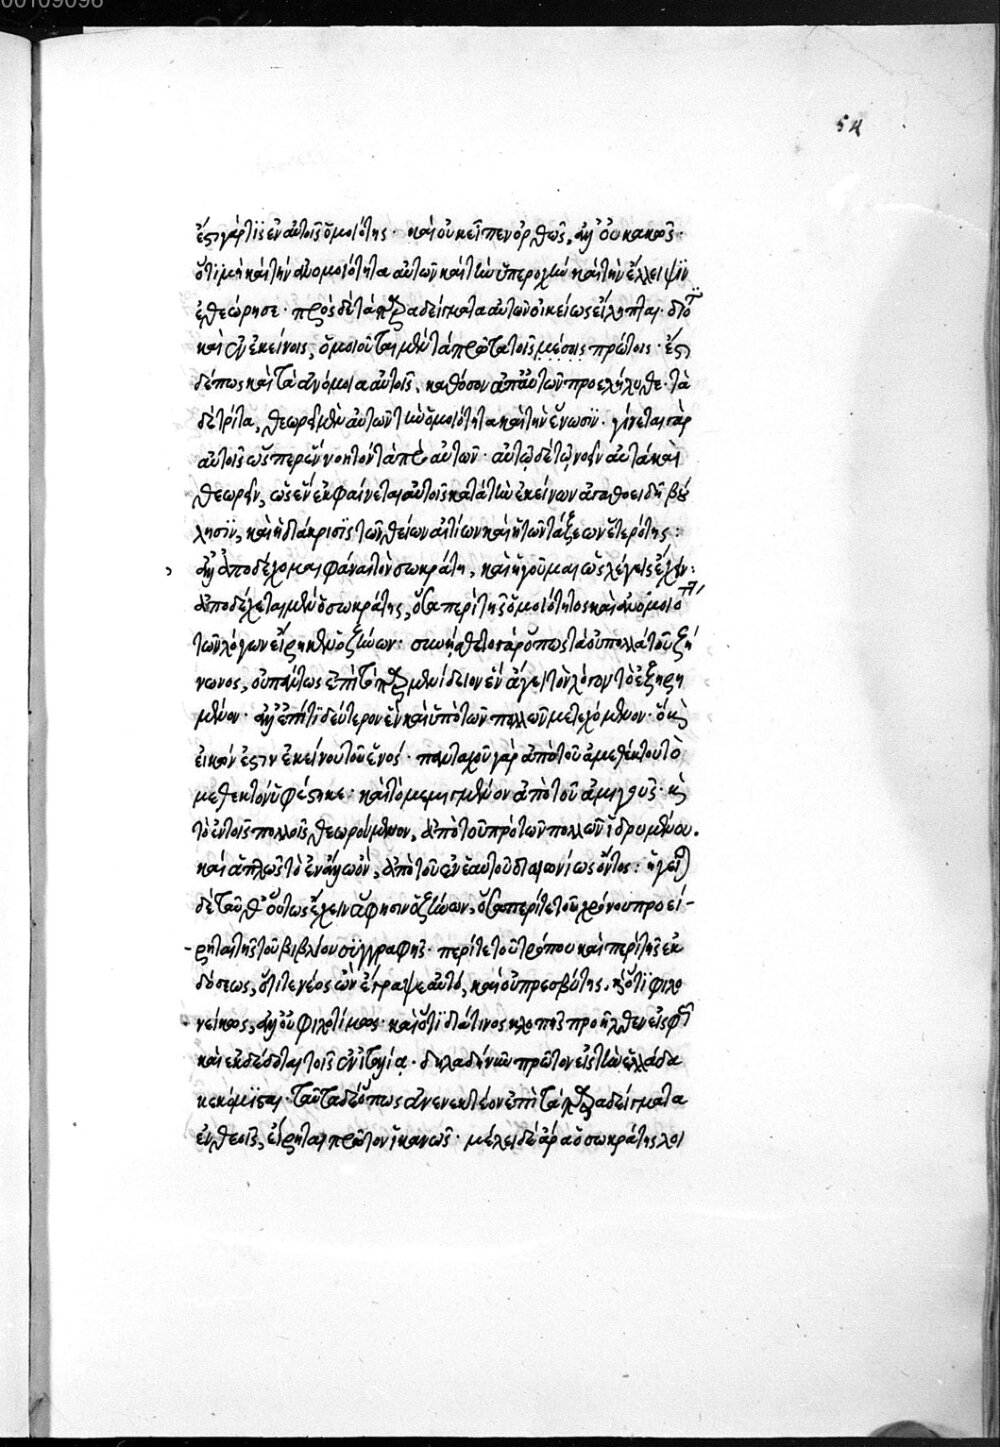 00109098
54
ἔστι γάρ τις ἐν αὐτοῖς ὁμοιότης· καὶ οὐκ εἶπεν ὀρθῶς, ἀλλ' οὐ κακῶς·
ὅτι μὴ καὶ τὴν ἀνομοιότητα αὐτῶν καὶ τὴν ὑπεροχὴν καὶ τὴν ἔλλειψιν
ἐθεώρησε· πρὸς δὲ τὰ παραδείγματα αὐτῶν οἰκείως εἴληπται· διότι
καὶ ἐν ἐκείνοις, ὁμοιοῦται μὲν τὰ πρῶτα τοῖς μέσοις πρώτοις· ἔστι
δέ πως καὶ τὰ ἀνόμοια αὐτοῖς, καθόσον ἀπ' αὐτῶν προελήλυθε· τὰ
δὲ τρίτα, θεωρεῖ μὲν αὐτῶν τὴν ὁμοιότητα καὶ τὴν ἕνωσιν· γίνεται γὰρ
αὐτοῖς ὥσπερ ἓν νοητὸν τὰ πρὸ αὐτῶν· αὐτῷ δὲ τῷ νοεῖν αὐτὰ καὶ
θεωρεῖν, ὡς ἓν ἐκφαίνεται αὐτοῖς κατὰ τὴν ἐκείνων ἀγαθοειδῆ βού
λησιν, καὶ ἡ διάκρισις τῶν θείων αἰτίων καὶ ἡ τῶν τάξεων ἑτερότης:
ἀλλ' ἀποδέχομαι φάναι τὸν σωκράτη, καὶ ἡγοῦμαι ὡς λέγεις ἔχειν:
ἀποδέχεται μὲν ὁ σωκράτης, ὅσα περὶ τῆς ὁμοιότητος καὶ ἀνομοιό τη
τῶν λόγων εἴρηκεν ὁ ζήνων· συνῄσθετο γὰρ ὅπως τὰ οὐ πολλὰ τοῦ ζή
νωνος, οὐ πάντως ἐπὶ τὸ παρμενίδειον ἓν ἄγει τὸν λόγον τὸ ἐξῃρη
μένον· ἀλλ' ἐπί τι δεύτερον ἓν καὶ ὑπὸ τῶν πολλῶν μετεχόμενον· ὃ καὶ
εἰκών ἐστιν ἐκείνου τοῦ ἑνός· πανταχοῦ γὰρ ἀπὸ τοῦ ἀμεθέκτου τὸ
μεθεκτὸν ὑφέστηκε· καὶ τὸ μεμιγμένον ἀπὸ τοῦ ἀμιγοῦς· καὶ
τὸ ἐν τοῖς πολλοῖς θεωρούμενον, ἀπὸ τοῦ πρὸ τῶν πολλῶν ἱδρυμένου.
καὶ ἁπλῶς τὸ ἐν ἄλλῳ ὂν, ἀπὸ τοῦ ἐν ἑαυτοῦ διαιωνίως ὄντος: ἡγεῖται
δὲ ταῦθ' οὕτως ἔχειν ἅ φησιν ὁ ζήνων, ὅσα περί τε τοῦ χρόνου προεί-
-ρηται τῆς τοῦ βιβλίου συγγραφῆς· περί τε τοῦ τρόπου καὶ περὶ τῆς ἐκ
δόσεως, ὅτι τε νέος ὢν ἔγραψε αὐτό, καὶ οὐ πρεσβύτης. καὶ ὅτι φιλο
νείκως, ἀλλ' οὐ φιλοτίμως· καὶ ὅτι διά τινος κλοπῆς προῆλθεν εἰς φῶς
καὶ ἐκδέδοται τοῖς ἐν ἰταλίᾳ· δηλαδὴ νῦν πρῶτον εἰς τὴν ἑλλάδα
κεκόμισται· ταῦτα δὲ ὅπως ἀνενεκτέον ἐπὶ τὰ παραδείγματα
ἐν θεοῖς, εἴρηται πρῶτον ἱκανῶς· μέχρι δὲ ἄρα ὁ σωκράτης λοι